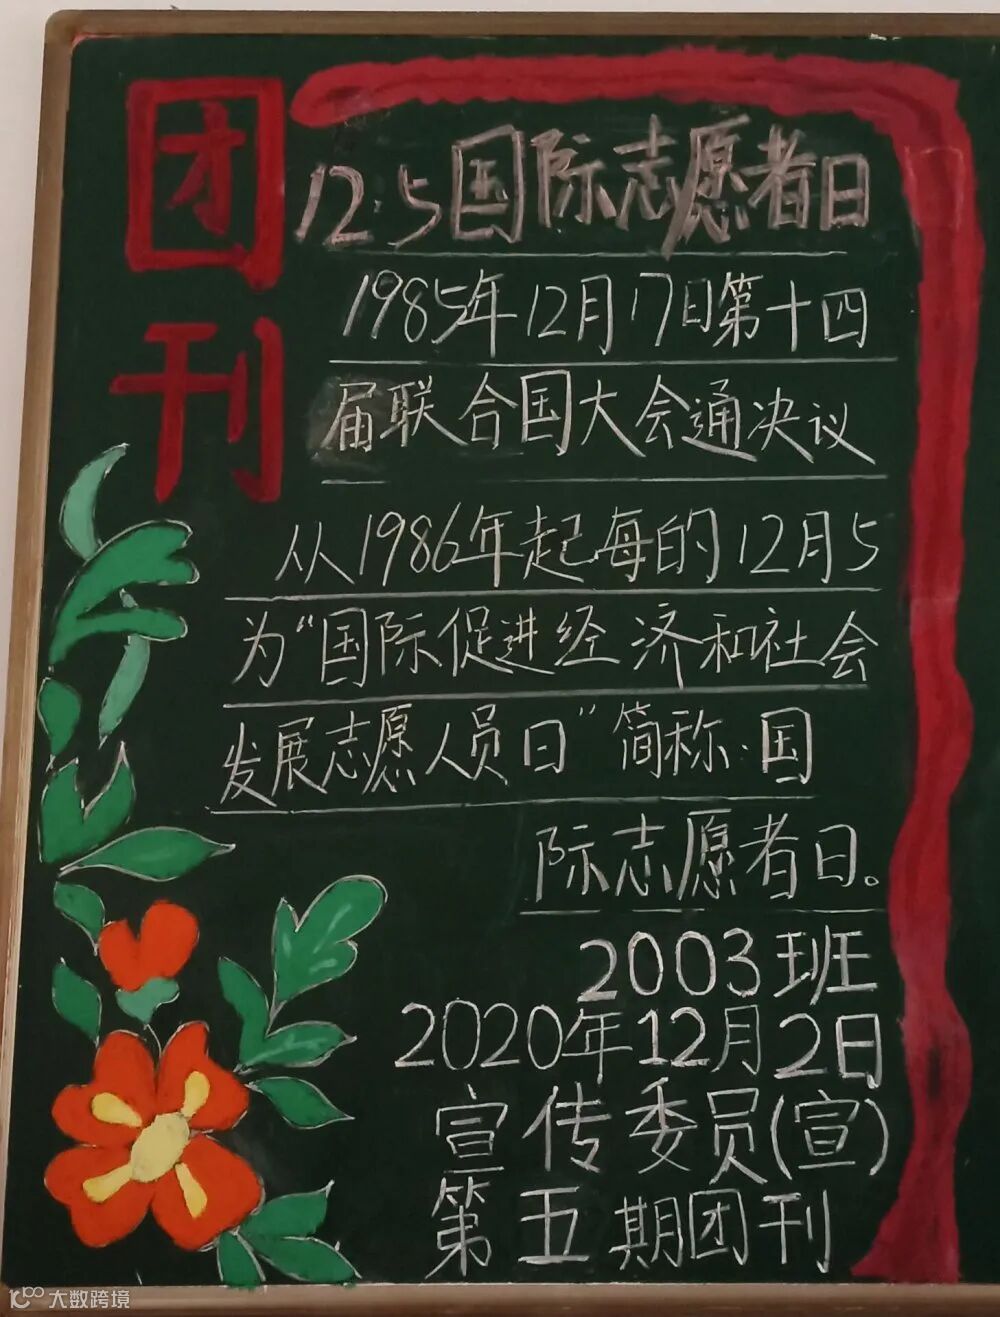 团刊
12.5国际志愿者日
1985年12月17日第十四
届联合国大会通决议
从1986年起每的12月5
为“国际促进经济和社会
发展志愿人员日”简称:国
际志愿者日。
2003班
2020年12月2日
宣传委员(宣)
第五期团刊
大数跨境